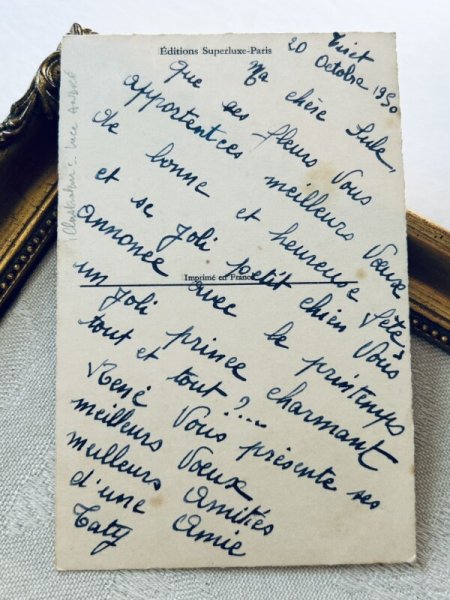 Éditions Superluxe-Paris
20 Octobre 1950
Ma chère Lula,
Que ces fleurs Vous
apportent ces meilleurs Vœux
de bonne et heureuse fête
et se joli petit chien Vous
annonce avec le printemps
un joli prince charmant
tout et tout ?...
René Vous présente ses
meilleurs Vœux
meilleurs Amitiés
d'une Amie
Taty
Imprimé en France